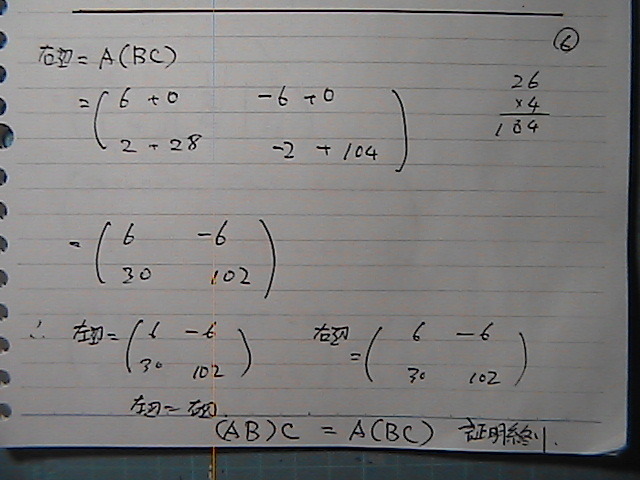 ⑥
右辺 = A(BC)
26
×4
104
= ( 6 + 0   -6 + 0
2 + 28   -2 + 104 )
= ( 6   -6
30   102 )
∴ 左辺 = ( 6   -6
30   102 )
右辺
= ( 6   -6
30   102 )
左辺 = 右辺
(AB)C = A(BC) 証明終り.